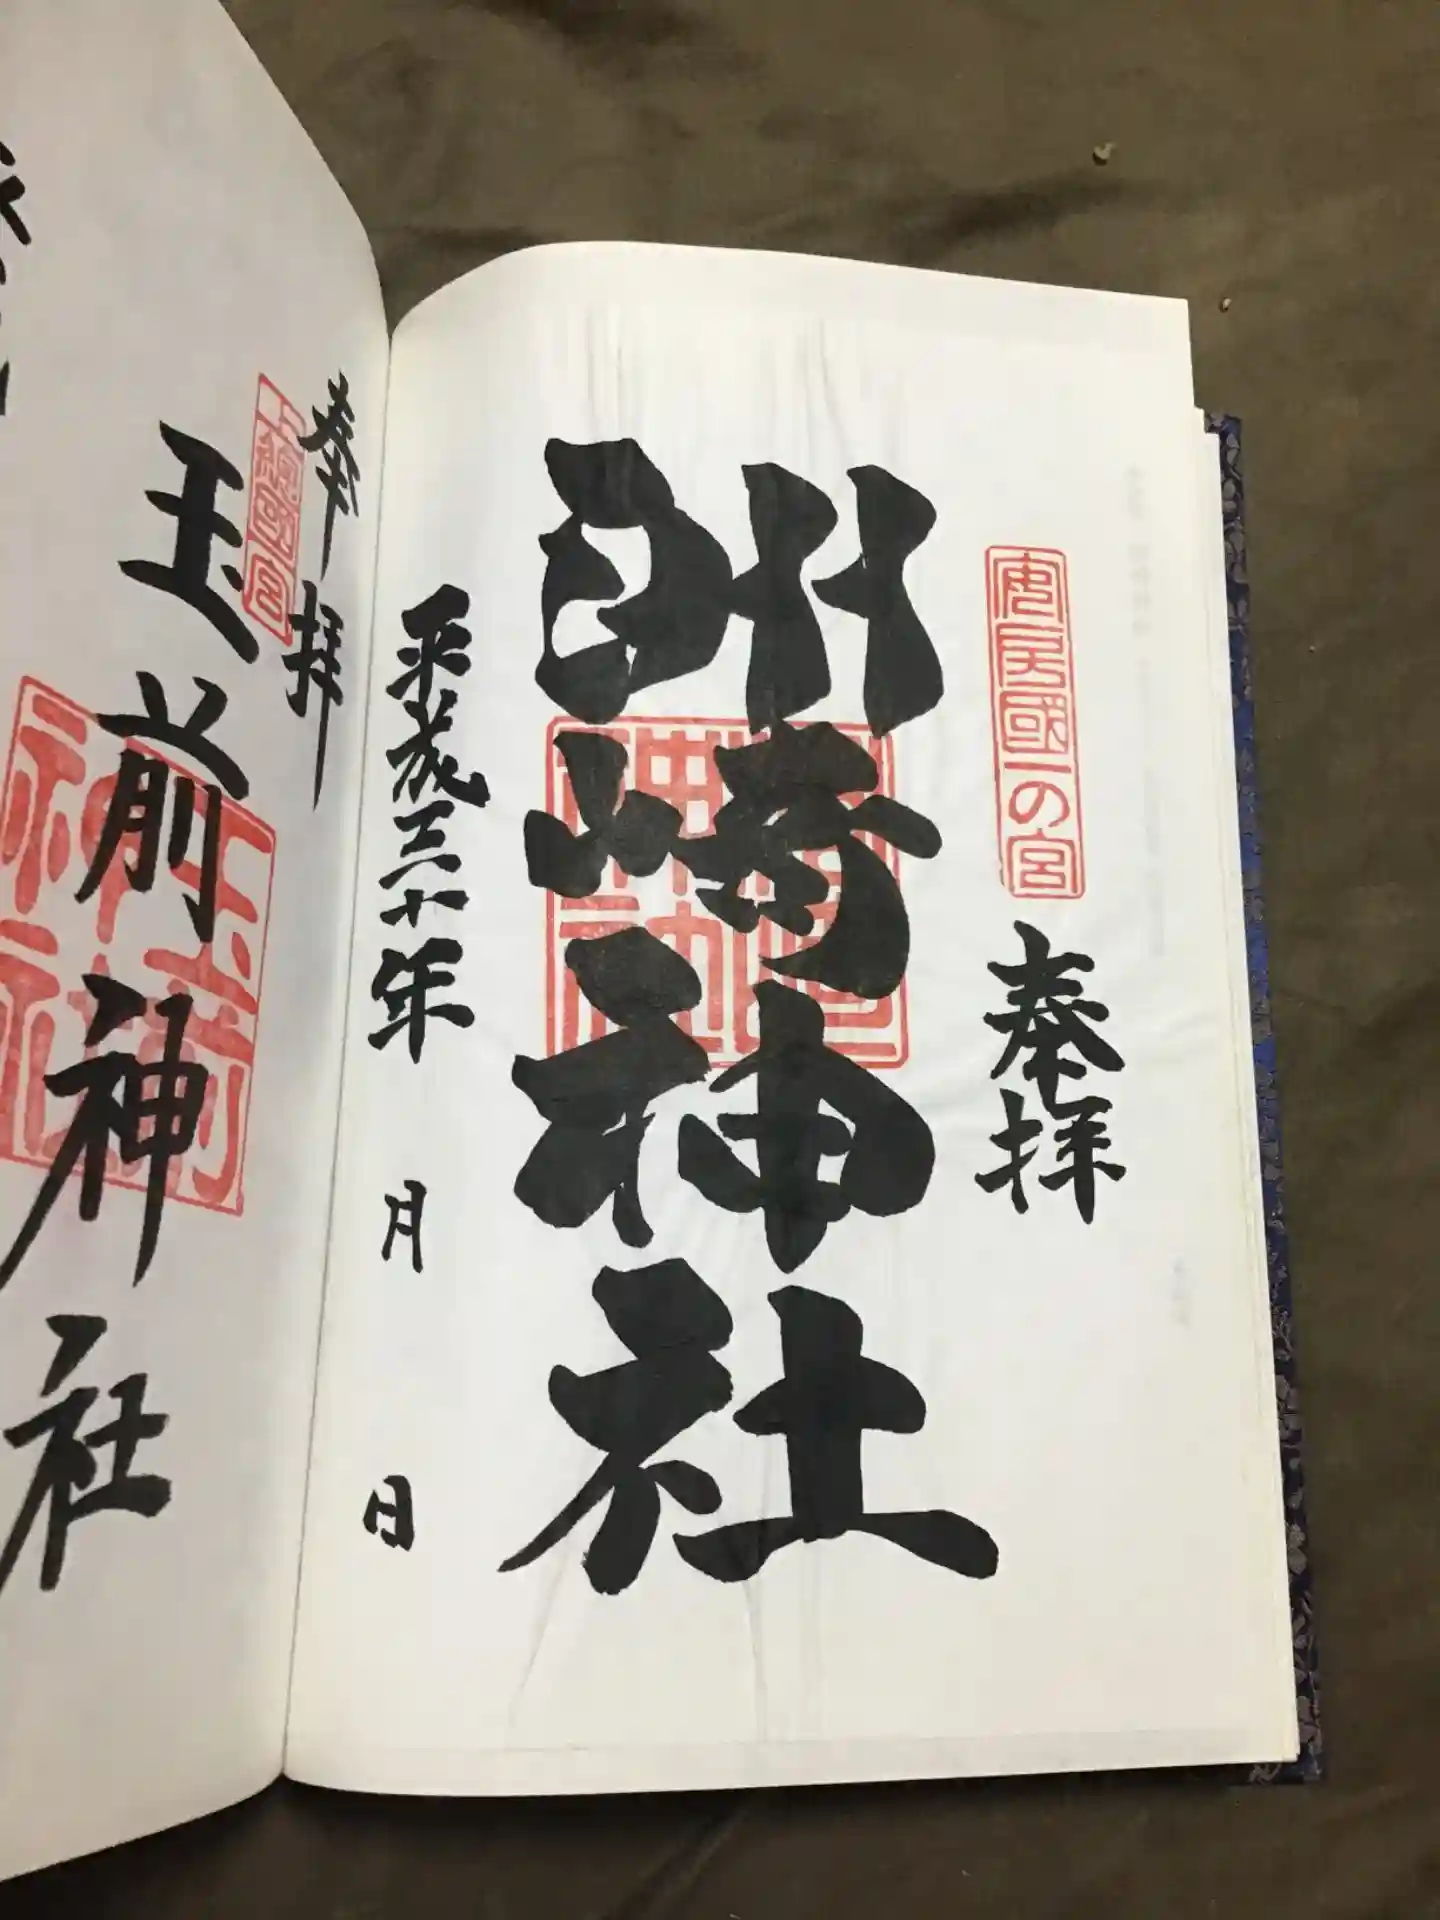 安房國一の宮
奉拝
洲崎神社
平成三十年
月
日
奉拝
上総国一之宮
玉前神社
玉前神社